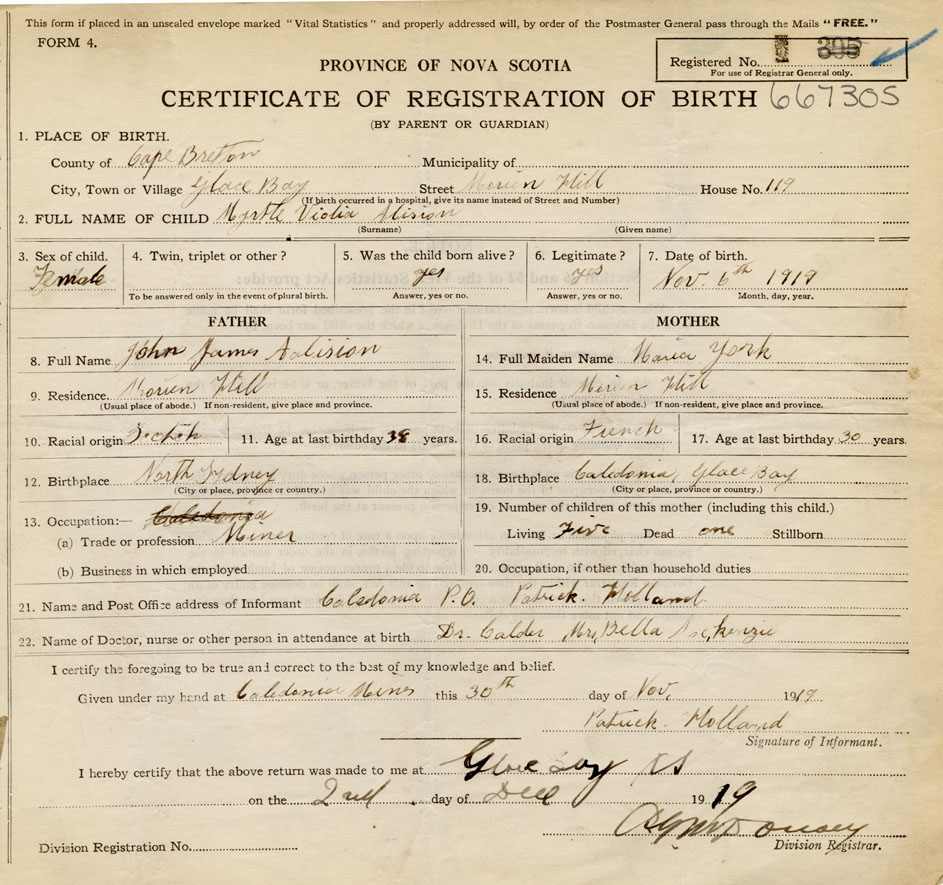 This form if placed in an unsealed envelope marked "Vital Statistics" and properly addressed will, by order of the Postmaster General pass through the Mails "FREE."
FORM 4.
Registered No. 395
For use of Registrar General only.
PROVINCE OF NOVA SCOTIA
CERTIFICATE OF REGISTRATION OF BIRTH 667305
(BY PARENT OR GUARDIAN)
1. PLACE OF BIRTH.
County of Cape Breton Municipality of
City, Town or Village Glace Bay Street Morien Hill House No. 119
(If birth occurred in a hospital, give its name instead of Street and Number)
2. FULL NAME OF CHILD Myrtle Violia
(Surname) (Given name)
3. Sex of child. Female
4. Twin, triplet or other?
To be answered only in the event of plural birth.
5. Was the child born alive? yes
Answer, yes or no.
6. Legitimate? yes
Answer, yes or no.
7. Date of birth.
Nov. 6th 1919
Month, day, year.
FATHER
8. Full Name John James
9. Residence. Morien Hill
(Usual place of abode.) If non-resident, give place and province.
10. Racial origin Scotish 11. Age at last birthday 38 years.
12. Birthplace North Sydney
(City or place, province or country.)
13. Occupation:— Caledonia
(a) Trade or profession Miner
(b) Business in which employed
MOTHER
14. Full Maiden Name Maria York
15. Residence Morien Hill
(Usual place of abode.) If non-resident, give place and province.
16. Racial origin French 17. Age at last birthday 30 years.
18. Birthplace Caledonia, Glace Bay
(City or place, province or country.)
19. Number of children of this mother (including this child.)
Living Five Dead one Stillborn
20. Occupation, if other than household duties
21. Name and Post Office address of Informant Caledonia P.O. Patrick. Holland
22. Name of Doctor, nurse or other person in attendance at birth Dr. Calder Mrs, Bella McKenzie
I certify the foregoing to be true and correct to the best of my knowledge and belief.
Given under my hand at Caledonia Mines this 30th day of Nov, 1919
Patrick. Holland
Signature of Informant.
I hereby certify that the above return was made to me at Glace Bay NS
on the 2nd day of Dec 1919
Division Registration No.
Division Registrar.